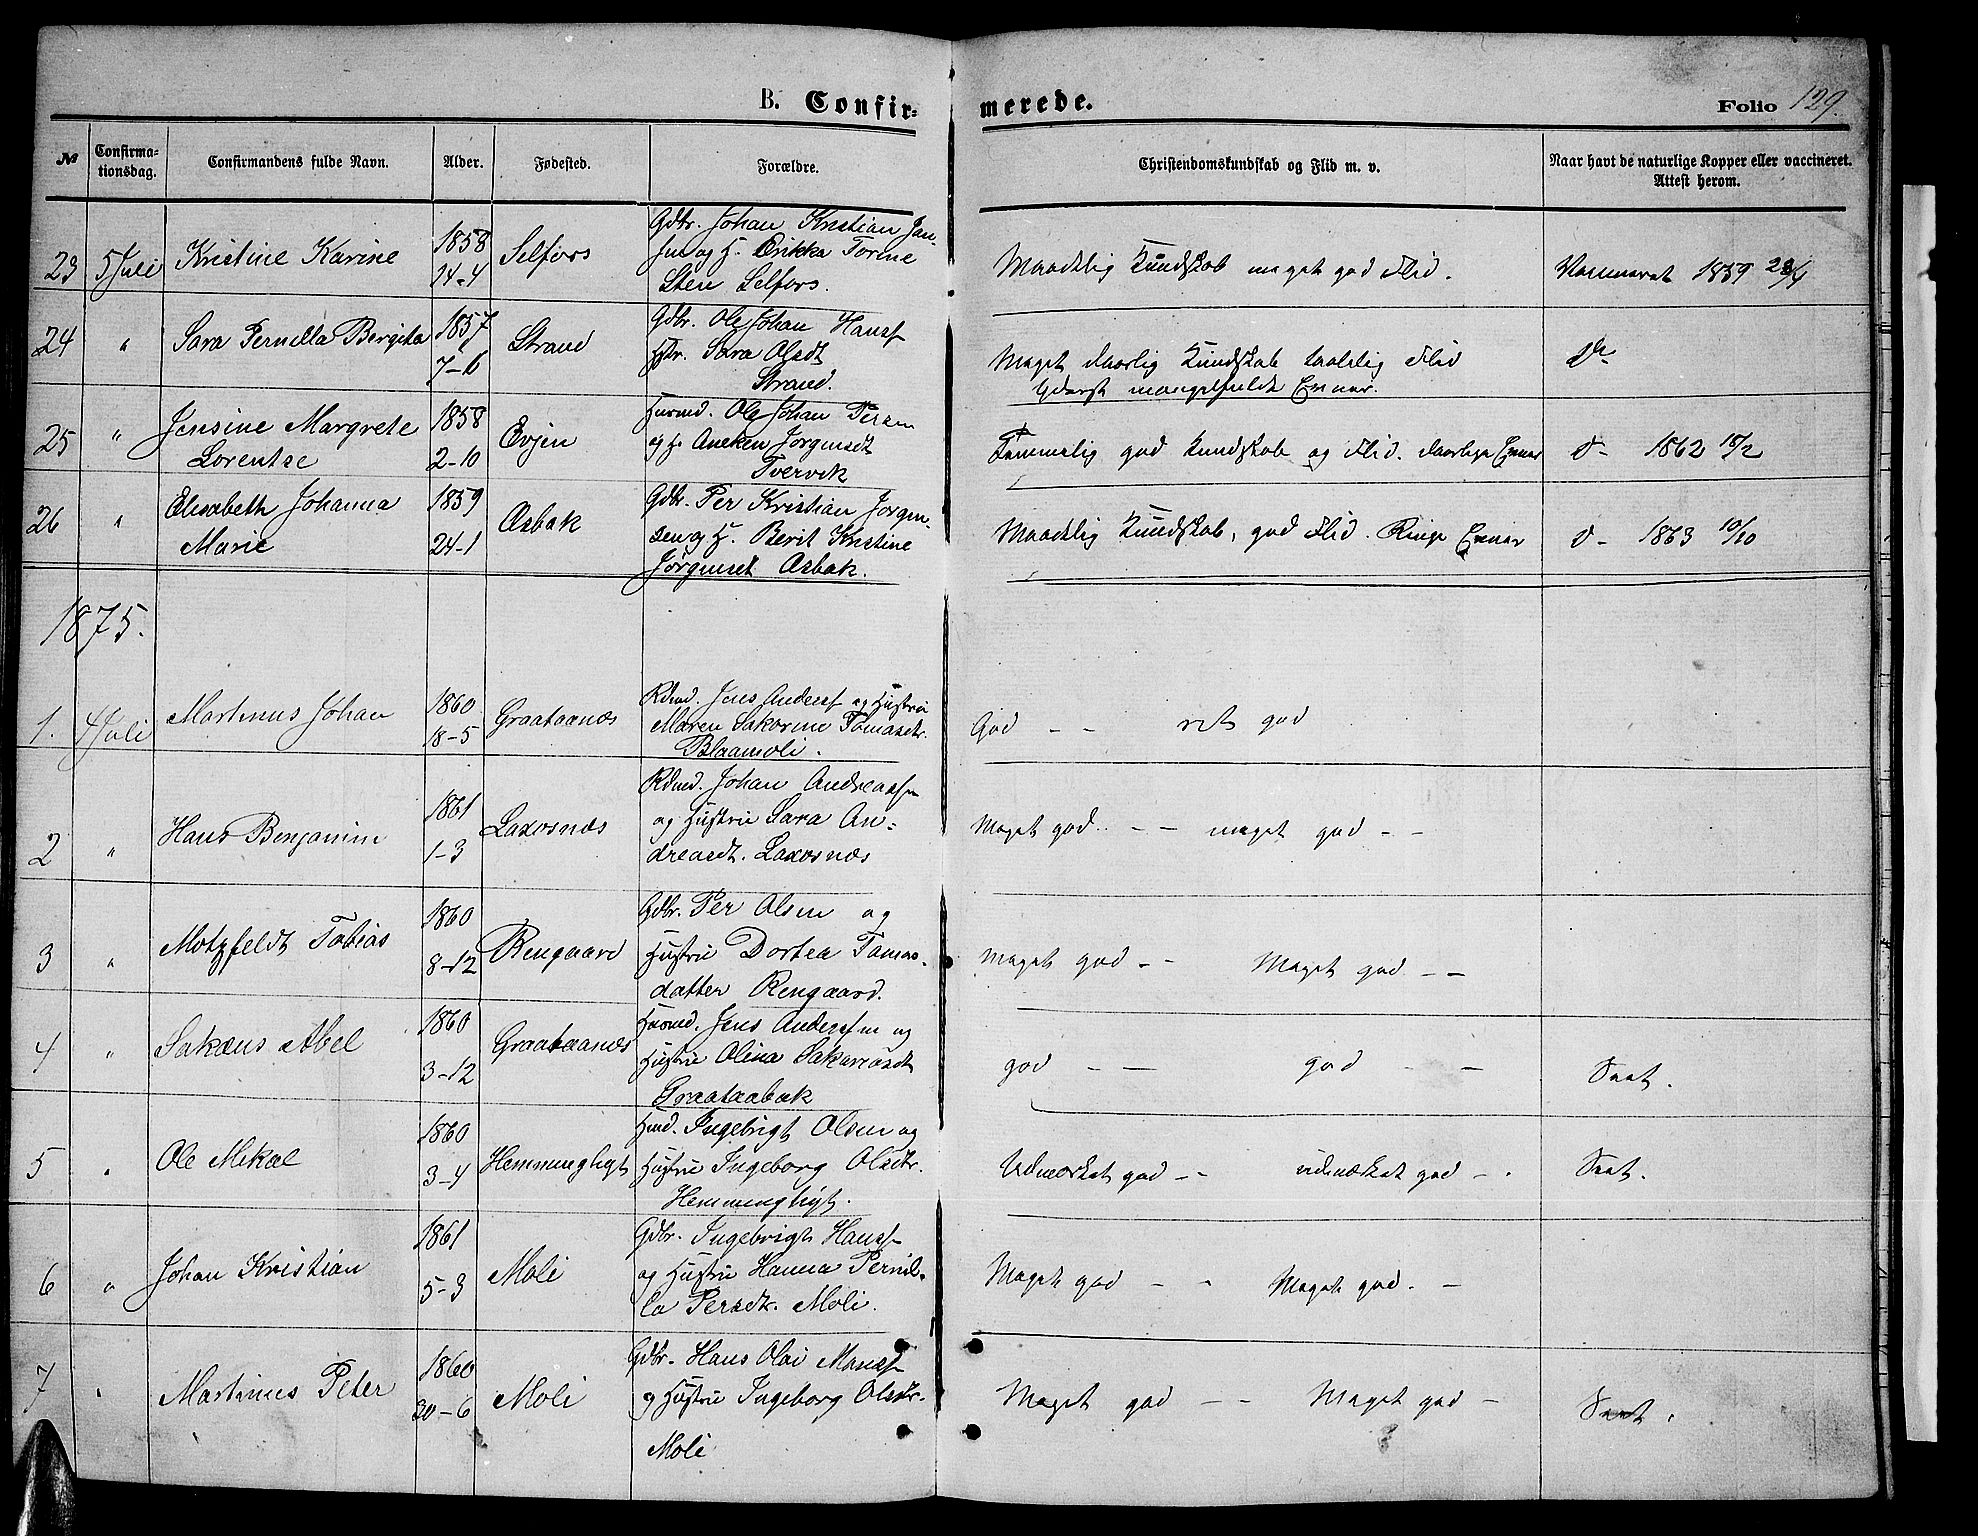 B. Confir-
merede.
Folio 129.
№
Confirma-
tionsdag.
Confirmandens fulde Navn.
Alder.
Fødested.
Forældre.
Christendomskundskab og Flid m. v.
Naar havt de naturlige Kopper eller vaccineret.
Attest herom.
23 5 Juli Kristine Karine 1858 24-4 Selfors
Gdbr. Johan Kristian Jan-
sen og H. Erikka Torine
Sten Selfors.
Maadelig Kundskab meget god Flid.
1859
24 " Sara Pernilla Bergita 1857 7-6 Strand
Gdbr. Ole Johan Hanss
Hstr. Sara Olsdt
Strand.
Maget daarlig Kundskab taalelig Flid
Yderst mangelfulde Evner.
25 " Jensine Margrete 1858 Evjen
Lorentse 2-10
Husmd. Ole Johan Persen
og H. Aneken Jørgensdt
Tvervik
Temmelig god Kundskab og Flid. daarlige Evner
1862
26 " Elisabeth Johanna 1859 Asbak
Marie 24-1
Gdbr. Per Kristian Jørgen-
sen og H. Berit Kristine
Jørgenset Asbak.
Maadelig Kundskab, god Flid. Ringe Evner
1863 10/10
1875.
1. 4 Juli Martinus Johan 1860 18-5 Graataanæs
Rdmd. Jens Anderss og Hustru
Maren Sakorine Tomasdtr.
Blaamoli.
God - - ret god
2 " Hans Benjamin 1861 1-3 Laxosnæs
Rdmd. Johan Andreassen
og Hustru Sara An-
dreasdt. Laxosnæs
Meget god. - - meget god - -
3 " Motzfeldt Tobias 1860 8-12 Rengaard
Gdbr. Per Olsen og
Hustru Dortea Tomas-
datter Rengaard.
Maget god - - Maget god - -
4 " Sakæus Abel 1860 3-12 Graataanæs
Husmd. Jens Anderssen og
Hustru Olina Sakariasdt
Graataabak
god - - god - -
5 " Ole Mikal 1860 3-4 Hemminghyt
Hmd. Ingebrigt Olsen og
Hustru Ingeborg Olsdtr.
Hemminghyt.
Udmærket god - - udmærket god - -
6 " Johan Kristian 1861 5-3 Moli
Gdbr. Ingebrigt Hanss
og Hustru Hanna Pernil-
la Persdt. Moli.
Maget god - - Maget god. -
7 " Martinus Peter 1860 30-6 Moli
Gdbr. Hans Olai Hanss
og Hustru Ingeborg Olsdtr.
Moli
Maget god - - Maget god -